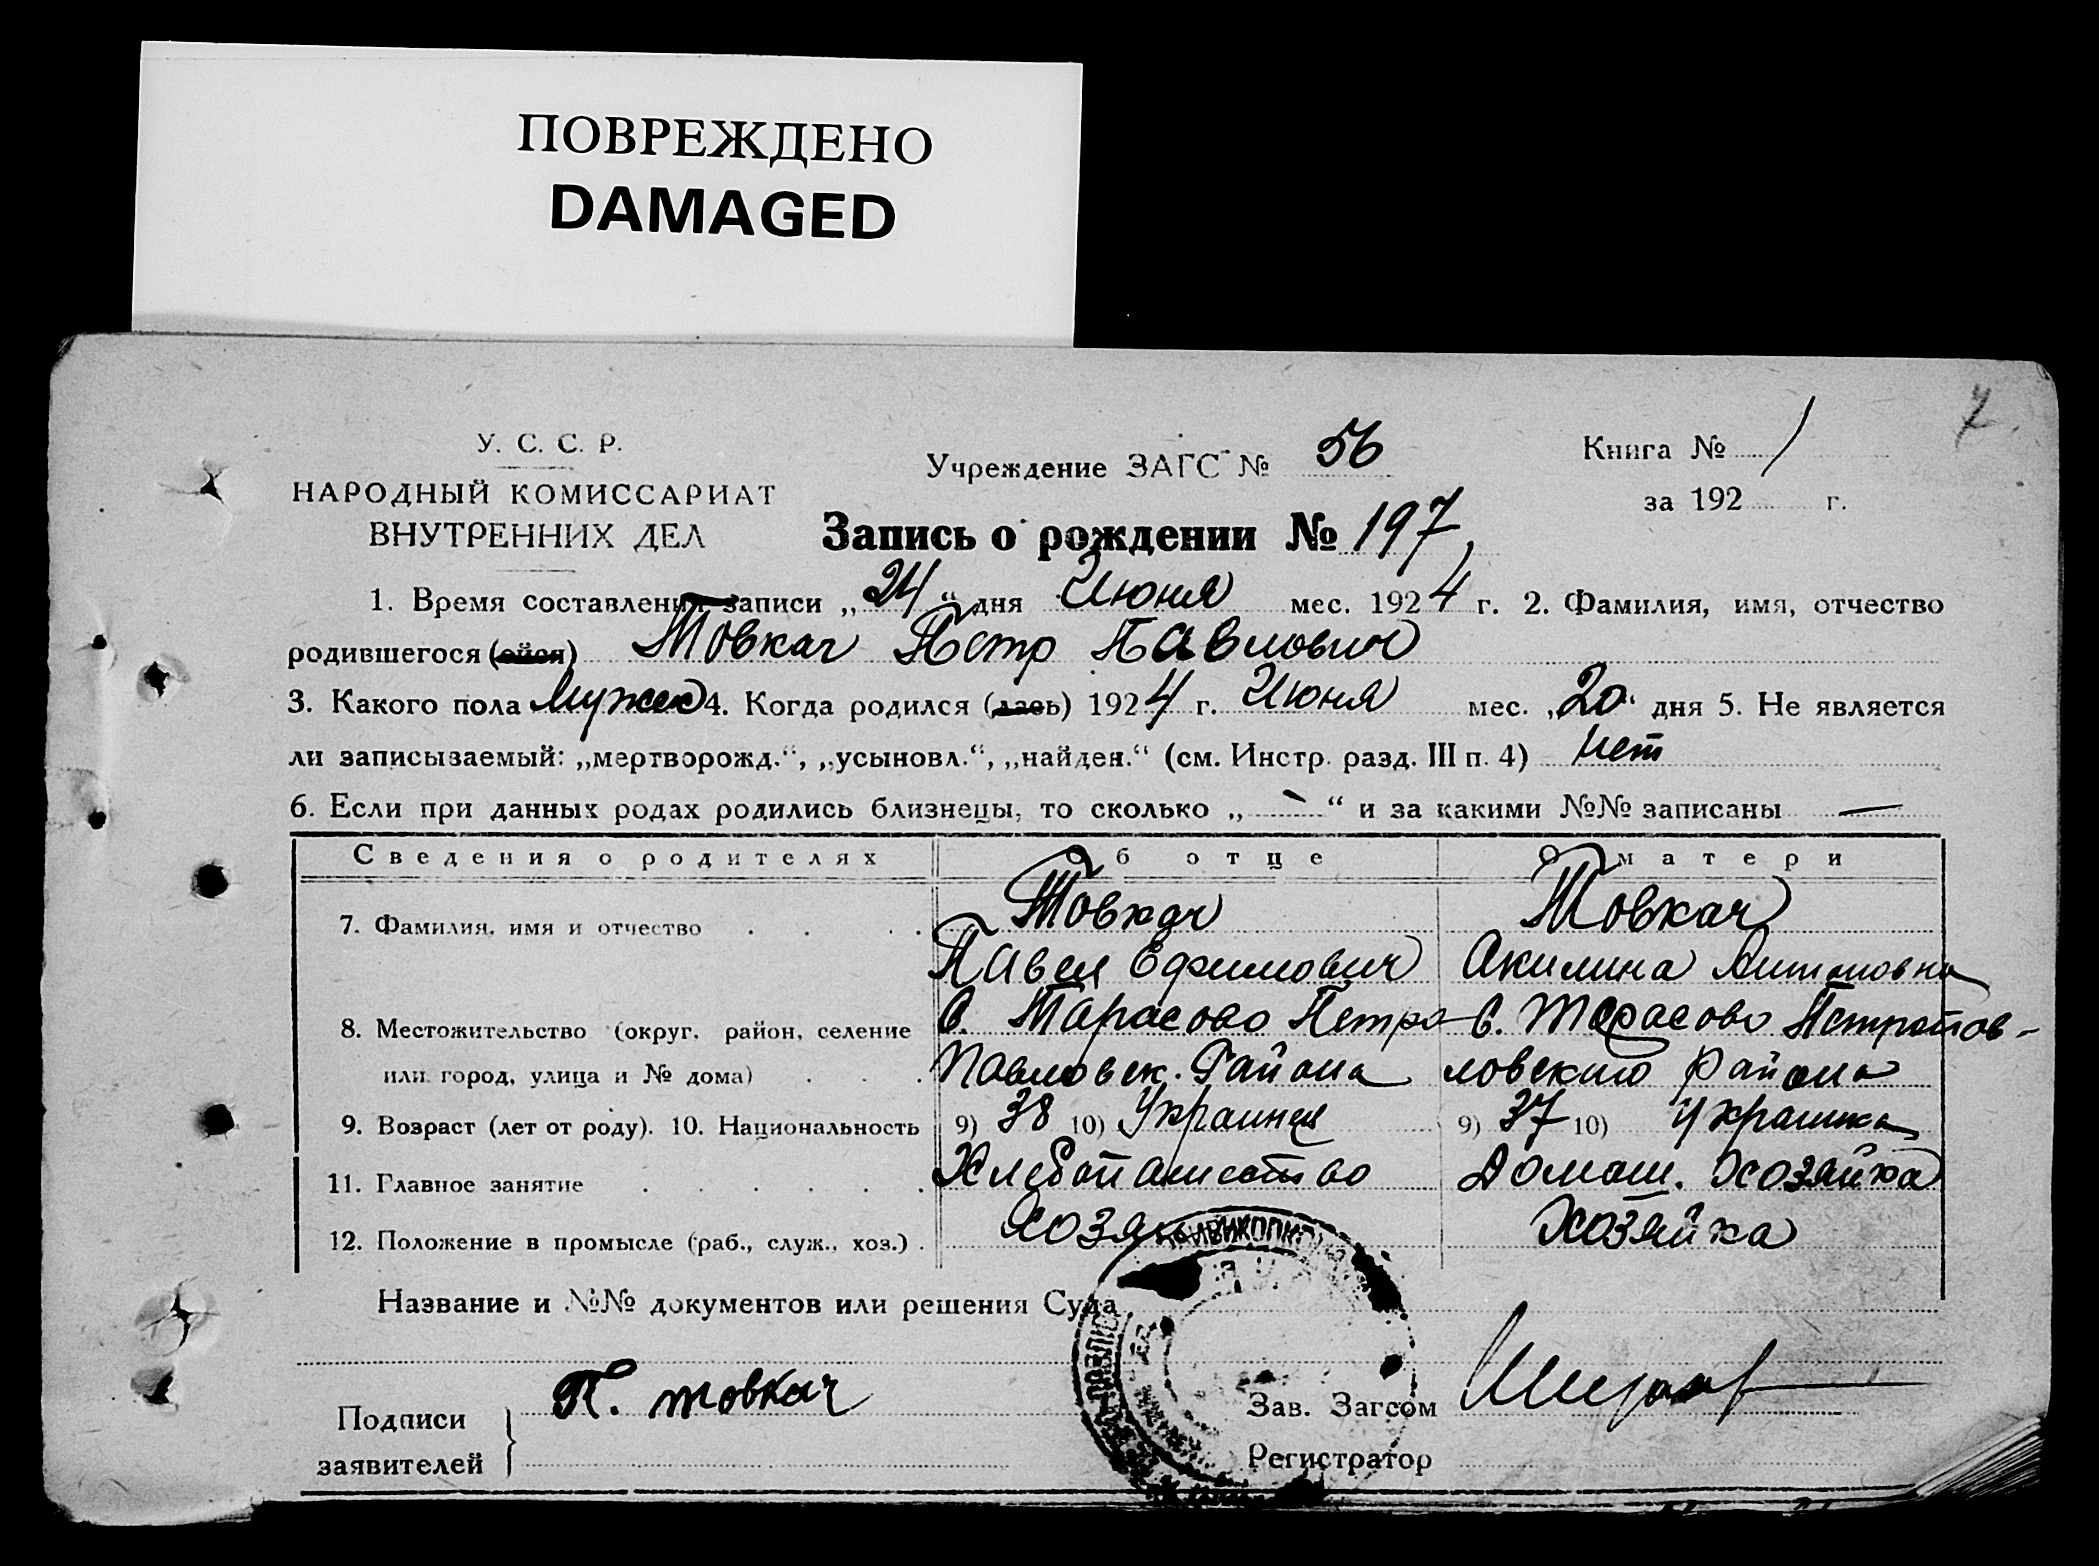 ПОВРЕЖДЕНО
DAMAGED
У. С. С. Р.
НАРОДНЫЙ КОМИССАРИАТ
ВНУТРЕННИХ ДЕЛ
Учреждение ЗАГС № 56
Книга № 1
за 192 г.
Запись о рождении № 197
1. Время составления записи „24“ дня Июня мес. 1924 г. 2. Фамилия, имя, отчество
родившегося (ойся) Товкач Петр Павлович
3. Какого пола Мужск 4. Когда родился (лась) 1924 г. Июня мес. „20“ дня 5. Не является
ли записываемый: „мертворожд.“, „усыновл.“, „найден.“ (см. Инстр. разд. III п. 4) нет
6. Если при данных родах родились близнецы, то сколько „-“ и за какими №№ записаны —
Сведения о родителях Об отце О матери
7. Фамилия, имя и отчество Товкач Товкач
Павел Ефимович Акилина Антоновна
8. Местожительство (округ, район, селение с. Тарасово Петро- с. Тарасово Петропав-
или город, улица и № дома) Павловск. Района ловского района
9. Возраст (лет от роду). 10. Национальность 9) 38 10) Украинец 9) 37 10) Украинка
11. Главное занятие Хлебопашество Домаш. Хозяйка
12. Положение в промысле (раб., служ., хоз.) Хозяин Хозяйка
Название и №№ документов или решения Суда
Подписи
заявителей
П. товкач
Зав. Загсом
Регистратор